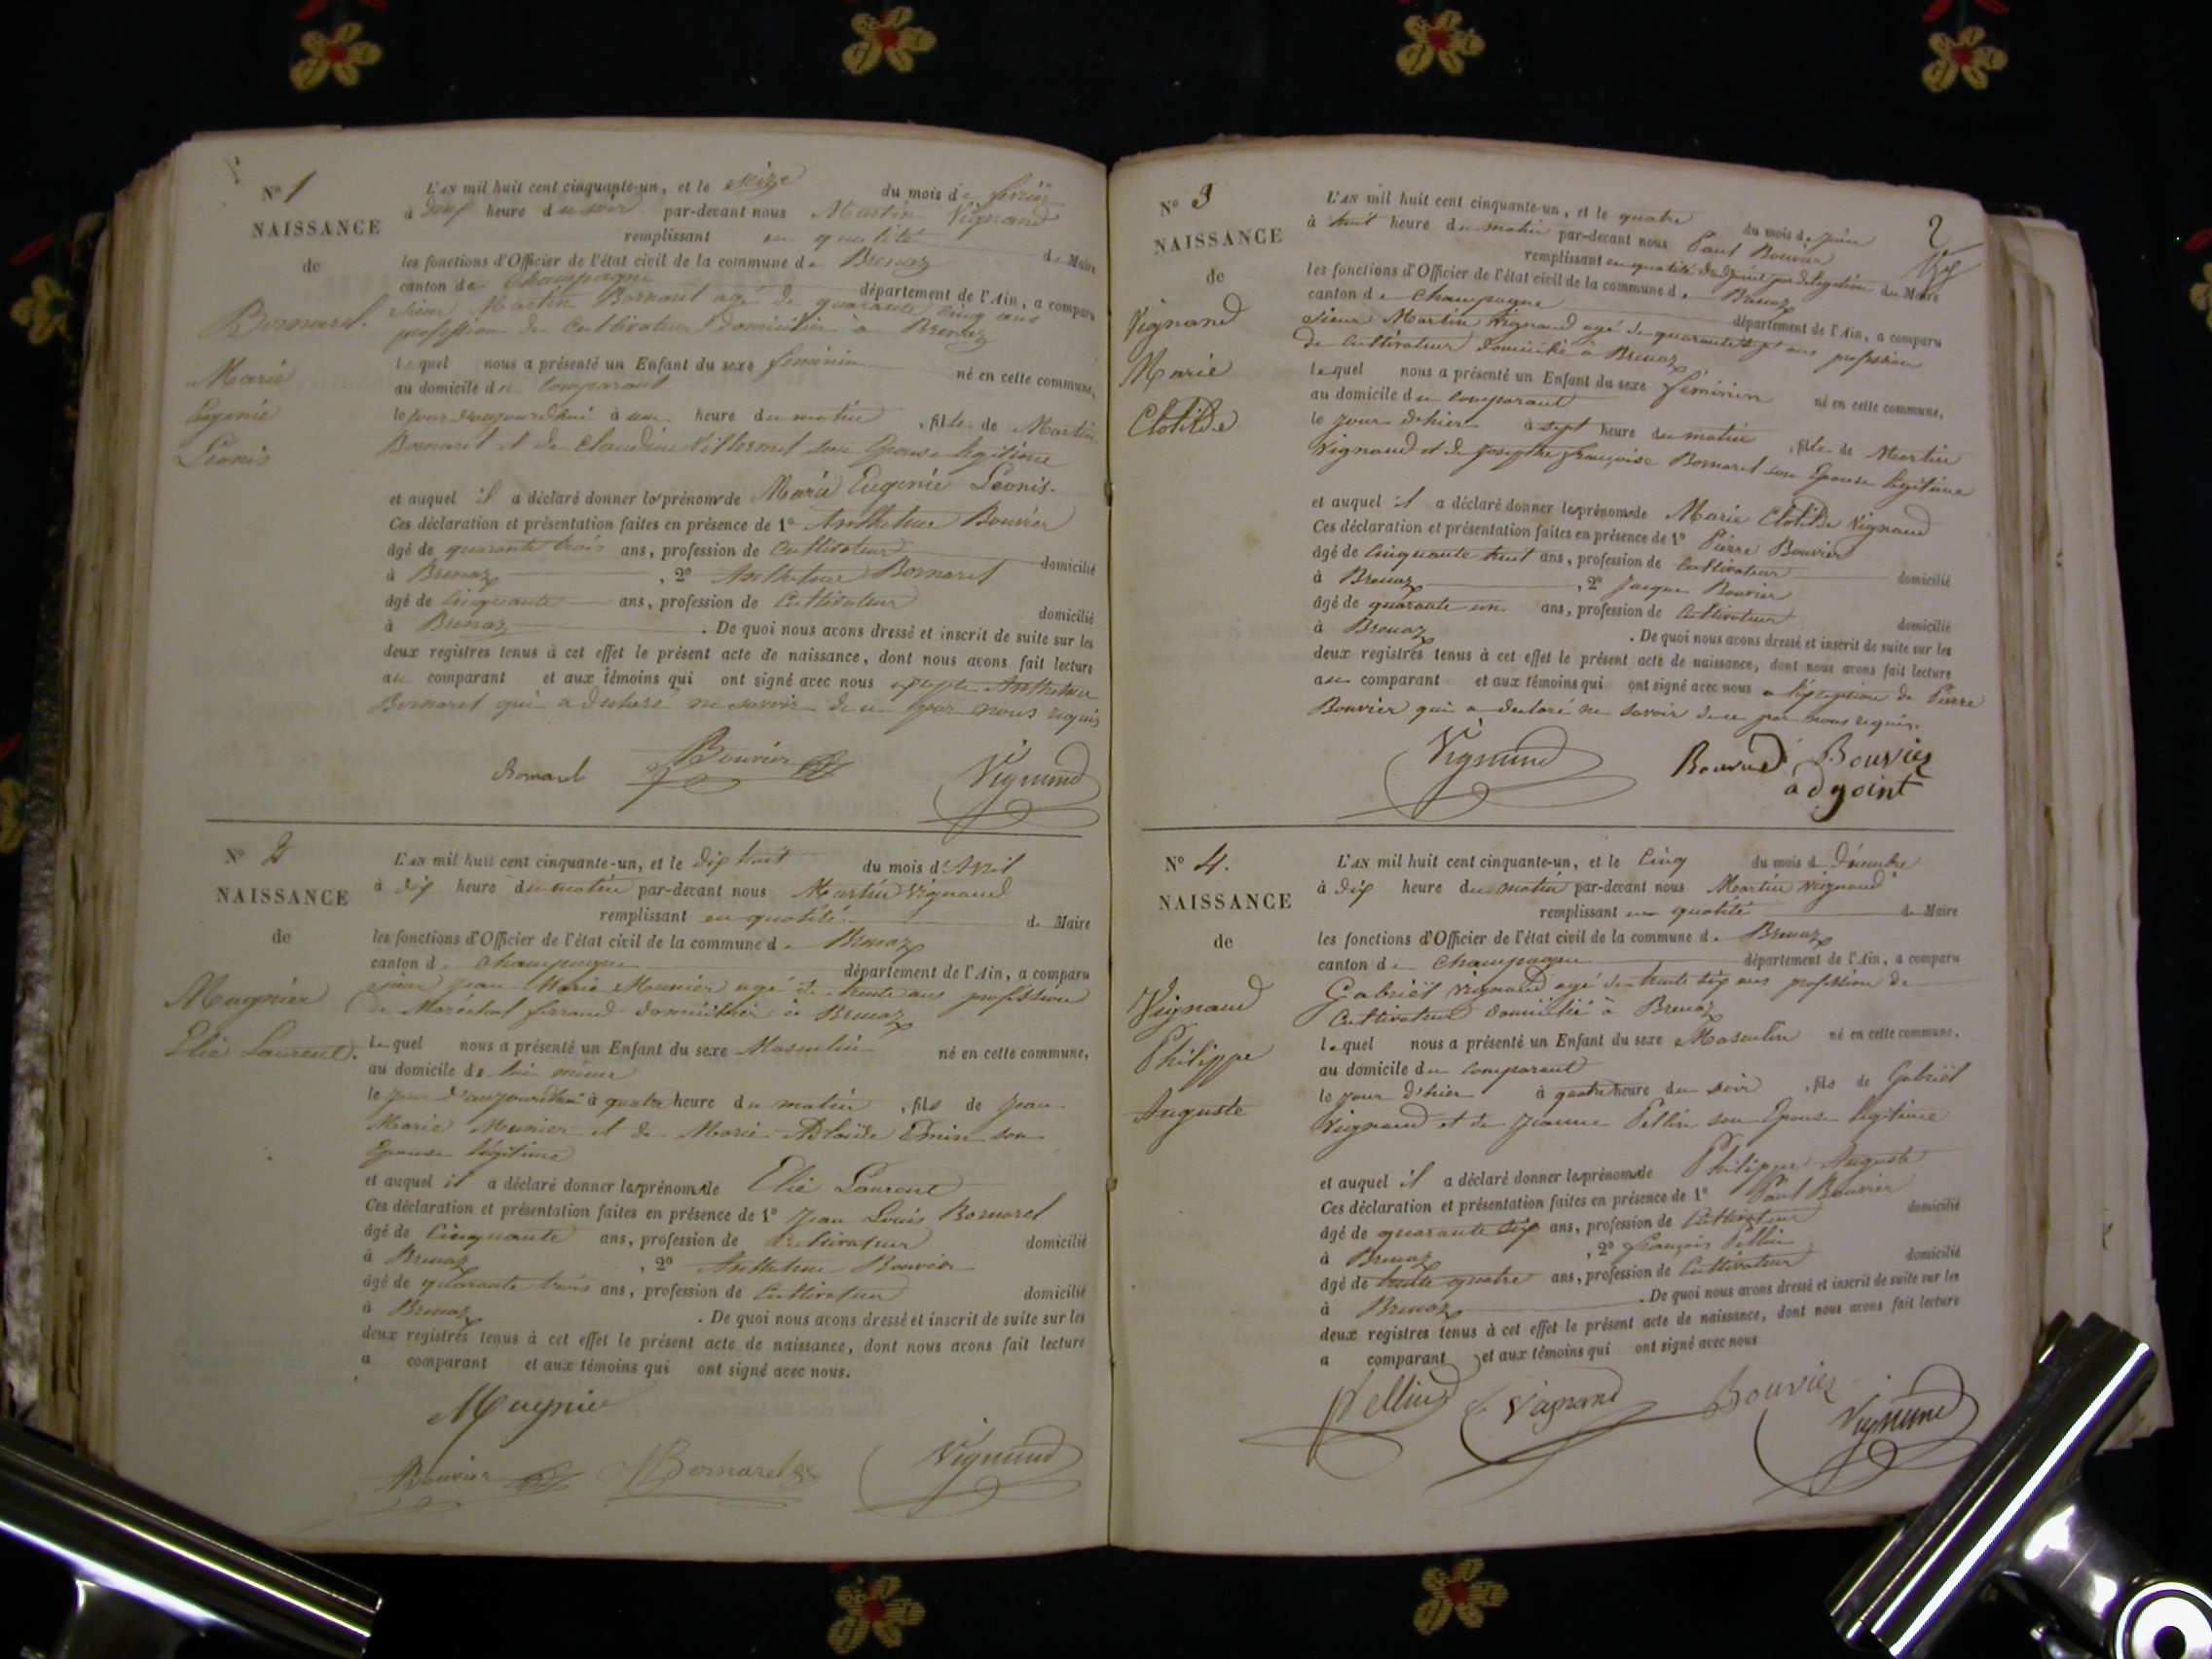 N° 1
NAISSANCE
de
Bornarel.
Marie
Eugénie
Léonis
L'AN mil huit cent cinquante-un, et le seize du mois de février
à deux heure du soir par-devant nous Martin Vignand
remplissant en qualité de Maire
les fonctions d'Officier de l'état civil de la commune de Brenaz
canton de Champagne département de l'Ain, a comparu
sieur Martin Bornarel agé de quarante cinq ans
profession de Cultivateur domicilié à Brenaz
lequel nous a présenté un Enfant du sexe féminin né en cette commune,
au domicile du comparant
le jour d'aujourd'hui à une heure du matin, fille de Martin
Bornarel et de Claudine Villermet son Epouse légitime
et auquel il a déclaré donner les prénoms de Marie Eugénie Léonis.
Ces déclaration et présentation faites en présence de 1° Anthelme Bouvier
âgé de quarante trois ans, profession de Cultivateur domicilié
à Brenaz, 2° Anthelme Bornarel
âgé de Cinquante ans, profession de Cultivateur domicilié
à Brenaz. De quoi nous avons dressé et inscrit de suite sur les
deux registres tenus à cet effet le présent acte de naissance, dont nous avons fait lecture
au comparant et aux témoins qui ont signé avec nous excepté Anthelme
Bornarel qui a déclaré ne savoir de ce par nous requis
Bornarel Bouvier Vignand
N° 2
NAISSANCE
de
Mugnier
Elie Laurent.
L'AN mil huit cent cinquante-un, et le dix huit du mois d'Avril
à dix heure du matin par-devant nous Martin Vignand
remplissant en qualité de Maire
les fonctions d'Officier de l'état civil de la commune de Brenaz
canton de Champagne département de l'Ain, a comparu
sieur Jean Marie Munier agé de trente ans profession
de Maréchal ferrand domicilié à Brenaz
lequel nous a présenté un Enfant du sexe Masculin né en cette commune,
au domicile de lui même
le jour d'aujourd'hui à quatre heure du matin, fils de Jean
Marie Munier et de Marie Adelaïde Emin son
Epouse légitime
et auquel il a déclaré donner les prénoms de Elie Laurent
Ces déclaration et présentation faites en présence de 1° Jean Louis Bornarel
âgé de Cinquante ans, profession de Cultivateur domicilié
à Brenaz, 2° Anthelme Bouvier
âgé de quarante trois ans, profession de Cultivateur domicilié
à Brenaz. De quoi nous avons dressé et inscrit de suite sur les
deux registres tenus à cet effet le présent acte de naissance, dont nous avons fait lecture
a comparant et aux témoins qui ont signé avec nous.
Mugnier
Bouvier Bornarel Vignand
2
N° 3
NAISSANCE
de
Vignand
Marie
Clotilde
L'AN mil huit cent cinquante-un, et le quatre du mois de juin
à huit heure du matin par-devant nous Paul Bouvier
remplissant en qualité d'adjoint par délégation du Maire
les fonctions d'Officier de l'état civil de la commune de Brenaz
canton de Champagne département de l'Ain, a comparu
sieur Martin Vignand agé de quarante sept ans profession
de Cultivateur domicilié à Brenaz
lequel nous a présenté un Enfant du sexe féminin né en cette commune,
au domicile du comparant
le jour d'hier à sept heure du matin, fille de Martin
Vignand et de Josephte françoise Bornarel son Epouse légitime
et auquel il a déclaré donner les prénoms de Marie Clotilde Vignand
Ces déclaration et présentation faites en présence de 1° Pierre Bouvier
âgé de Cinquante huit ans, profession de Cultivateur domicilié
à Brenaz, 2° Jacque Bouvier
âgé de quarante un ans, profession de Cultivateur domicilié
à Brenaz. De quoi nous avons dressé et inscrit de suite sur les
deux registres tenus à cet effet le présent acte de naissance, dont nous avons fait lecture
au comparant et aux témoins qui ont signé avec nous a l'exception de Pierre
Bouvier qui a declaré ne savoir de ce par nous requis.
Vignand Bouvier
adgoint
N° 4.
NAISSANCE
de
Vignand
Philippe
Auguste
L'AN mil huit cent cinquante-un, et le Cinq du mois de Décembre
à dix heure du matin par-devant nous Martin Vignand
remplissant en qualité de Maire
les fonctions d'Officier de l'état civil de la commune de Brenaz
canton de Champagne département de l'Ain, a comparu
Gabriël Vignand agé de trente six ans profession de
Cultivateur domicilié à Brenaz
lequel nous a présenté un Enfant du sexe Masculin né en cette commune,
au domicile du comparant
le jour d'hier à quatre heure du soir, fils de Gabriël
Vignand et de Jeanne Pellin son Epouse légitime
et auquel il a déclaré donner les prénoms de Philippe Auguste
Ces déclaration et présentation faites en présence de 1° Paul Bouvier
âgé de quarante six ans, profession de Cultivateur domicilié
à Brenaz, 2° françois Pellin
âgé de trente quatre ans, profession de Cultivateur domicilié
à Brenaz. De quoi nous avons dressé et inscrit de suite sur les
deux registres tenus à cet effet le présent acte de naissance, dont nous avons fait lecture
a comparant et aux témoins qui ont signé avec nous
Pellin Vignand Bouvier Vignand